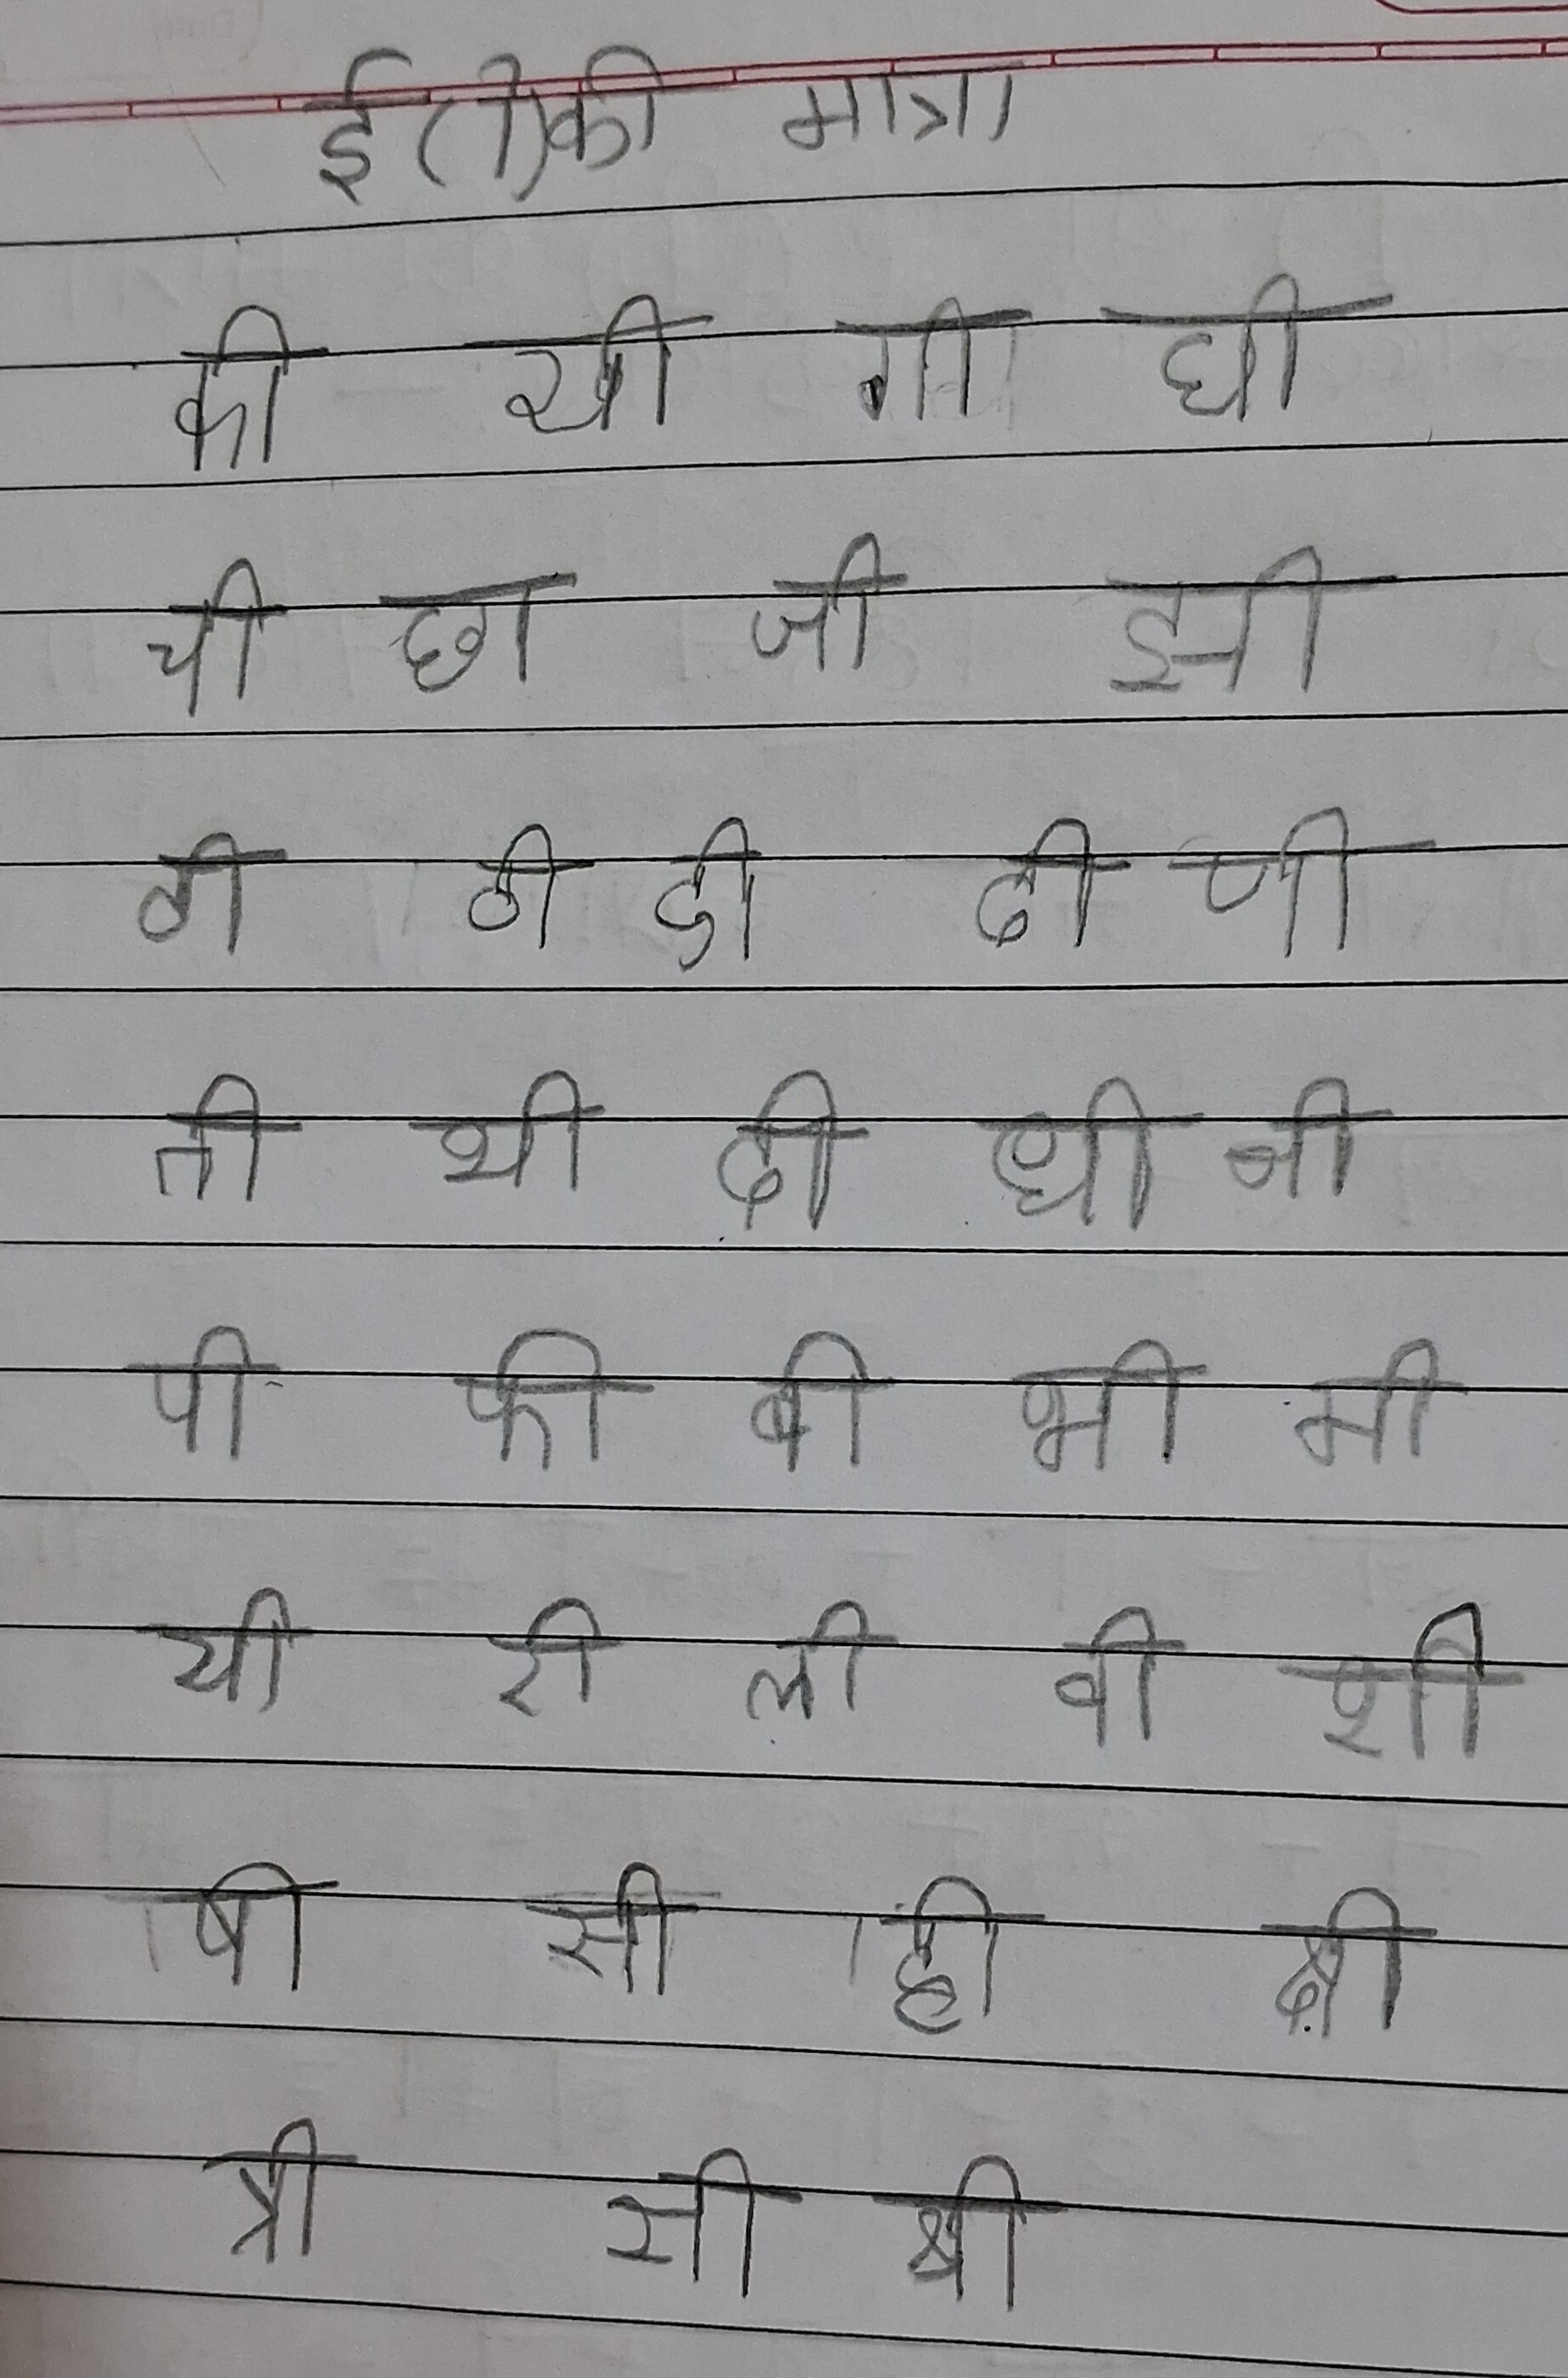 ई (ी) की मात्रा
की खी गी घी
ची छा जी झी
ठी ठी डी ढी णी
ती थी दी धी नी
पी फी बी भी मी
यी री ली वी शी
षी सी ही क्षी
त्री श्री